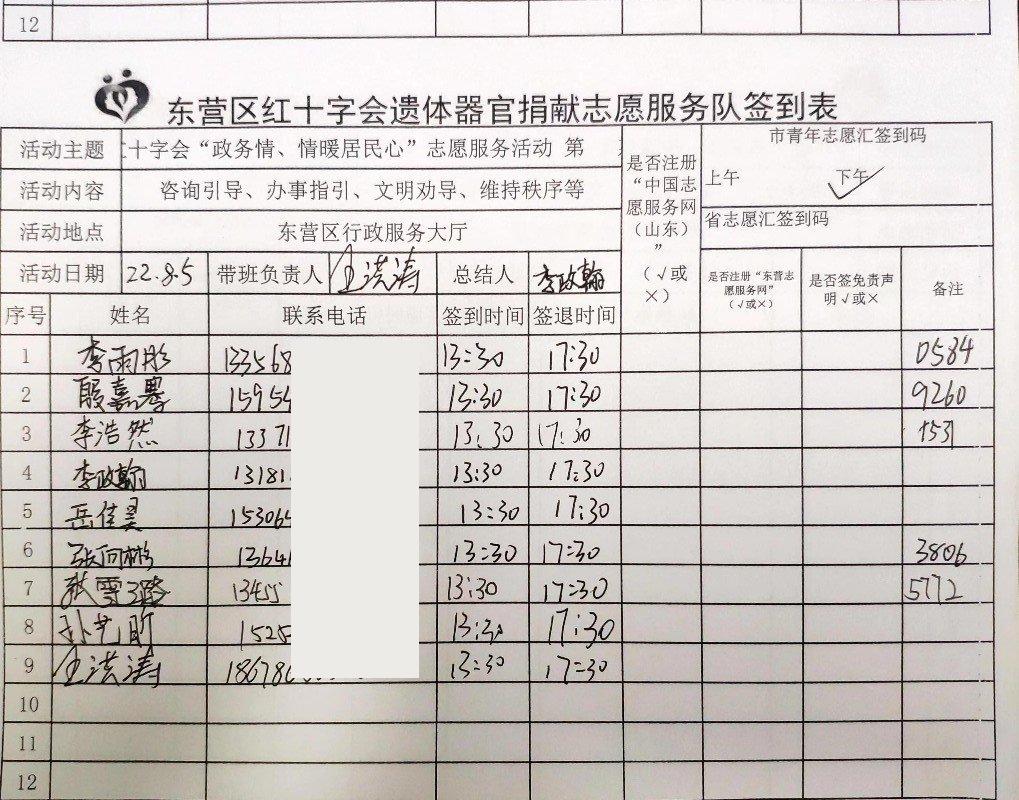 12
东营区红十字会遗体器官捐献志愿服务队签到表
活动主题 十字会“政务情、情暖居民心”志愿服务活动 第
是否注册“中国志愿服务网（山东）”（√或×）
市青年志愿汇签到码
活动内容 咨询引导、办事指引、文明劝导、维持秩序等
上午 下午 √
活动地点 东营区行政服务大厅
省志愿汇签到码
活动日期 22.8.5 带班负责人 王洪涛 总结人 李政翰
是否注册“东营志愿服务网”（√或×） 是否签免责声明√或× 备注
序号 姓名 联系电话 签到时间 签退时间
1 李雨彤 133568 13:30 17:30 0584
2 殷嘉 15954 13:30 17:30 9260
3 李浩然 13371 13:30 17:30 1531
4 李政翰 13181 13:30 17:30
5 岳佳昊 153064 13:30 17:30
6 张向彬 13641 13:30 17:30 3806
7 雪璐 13455 13:30 17:30 5772
8 孙艺 1525 13:30 17:30
9 王洪涛 18678 13:30 17:30
10
11
12